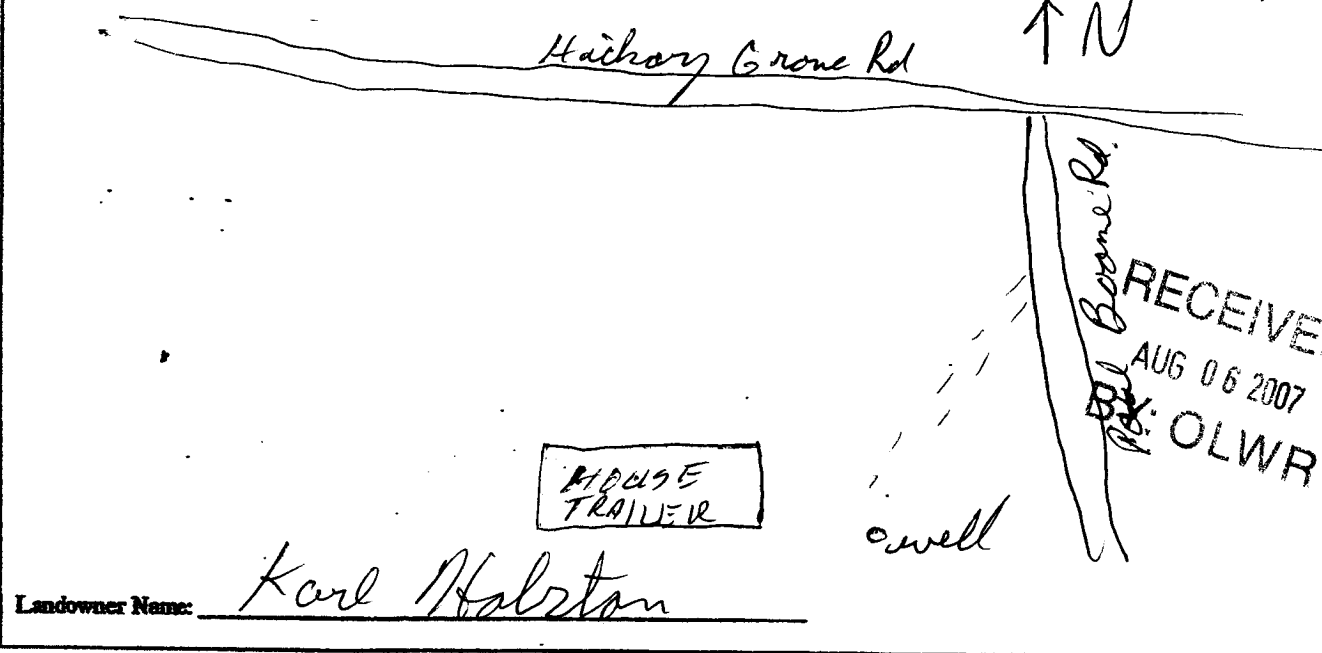 ↑ N
Hickory Grove Rd
Boone Rd.
RECEIVE
AUG 06 2007
BY: OLWR
HOUSE
TRAILER
well
Landowner Name: Karl Holston